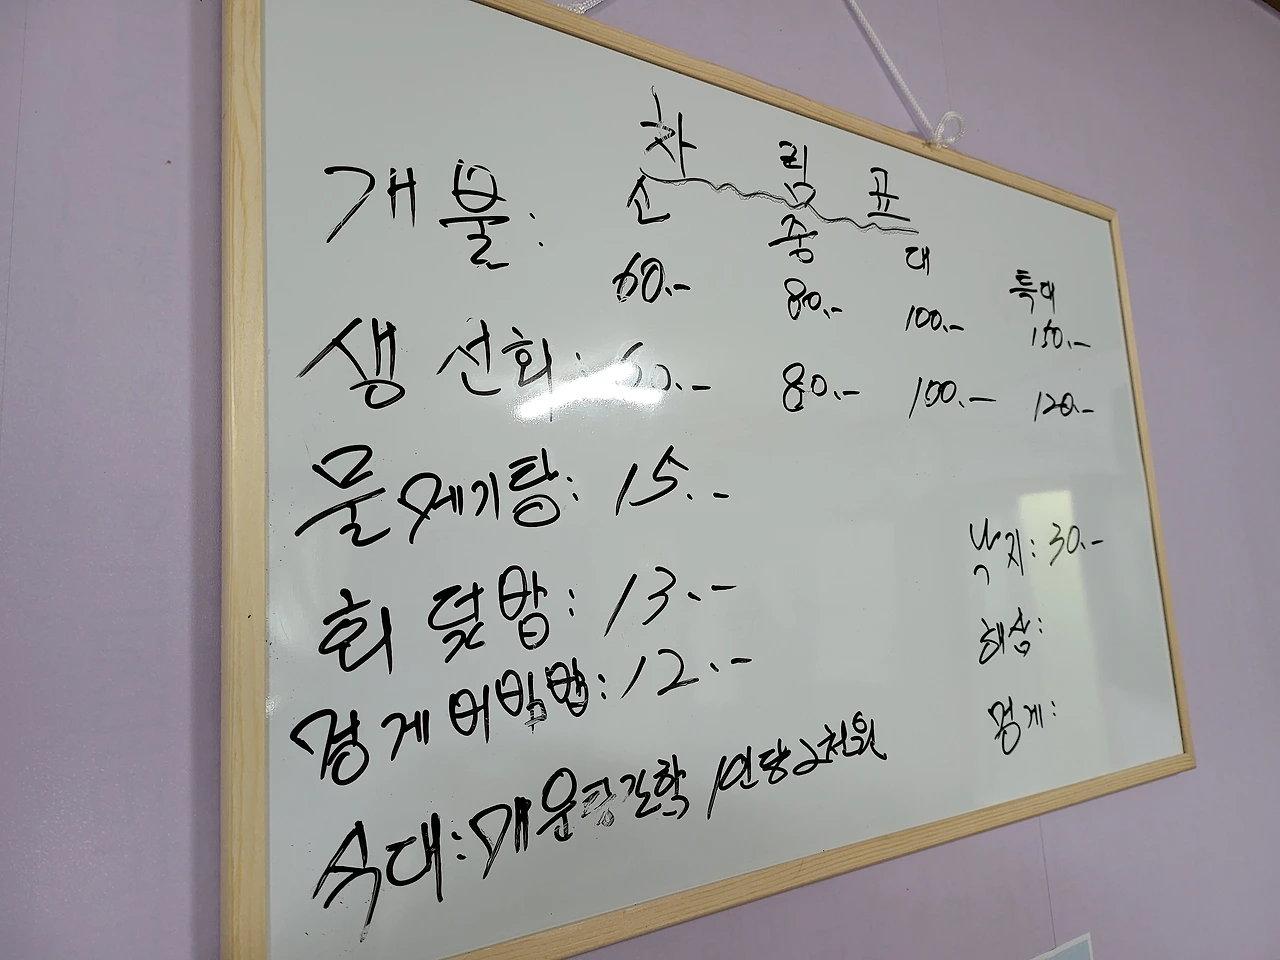 차림표
개불: 소 중 대 특대
60.- 80.- 100.- 150.-
생선회: 60.- 80.- 100.- 120.-
물메기탕: 15.-
낙지: 30.-
회덮밥: 13.-
해삼:
멍게비빔밥: 12.-
멍게:
식대: 매운탕 1인당 2천원